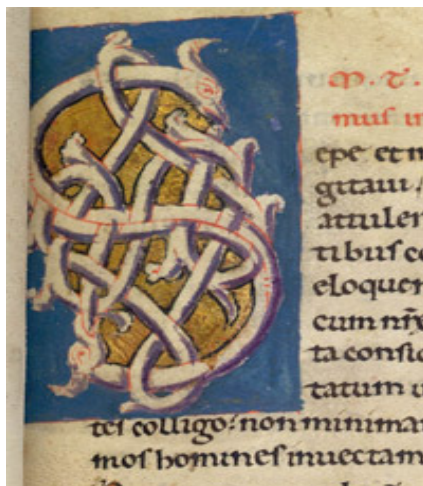 M · T ·
mus in
S epe et m
gitaui
attuler
tibus co
eloquen
cum nr̄x
ta consid
tatum u
tes colligo: non minimam
mos homines inuectam